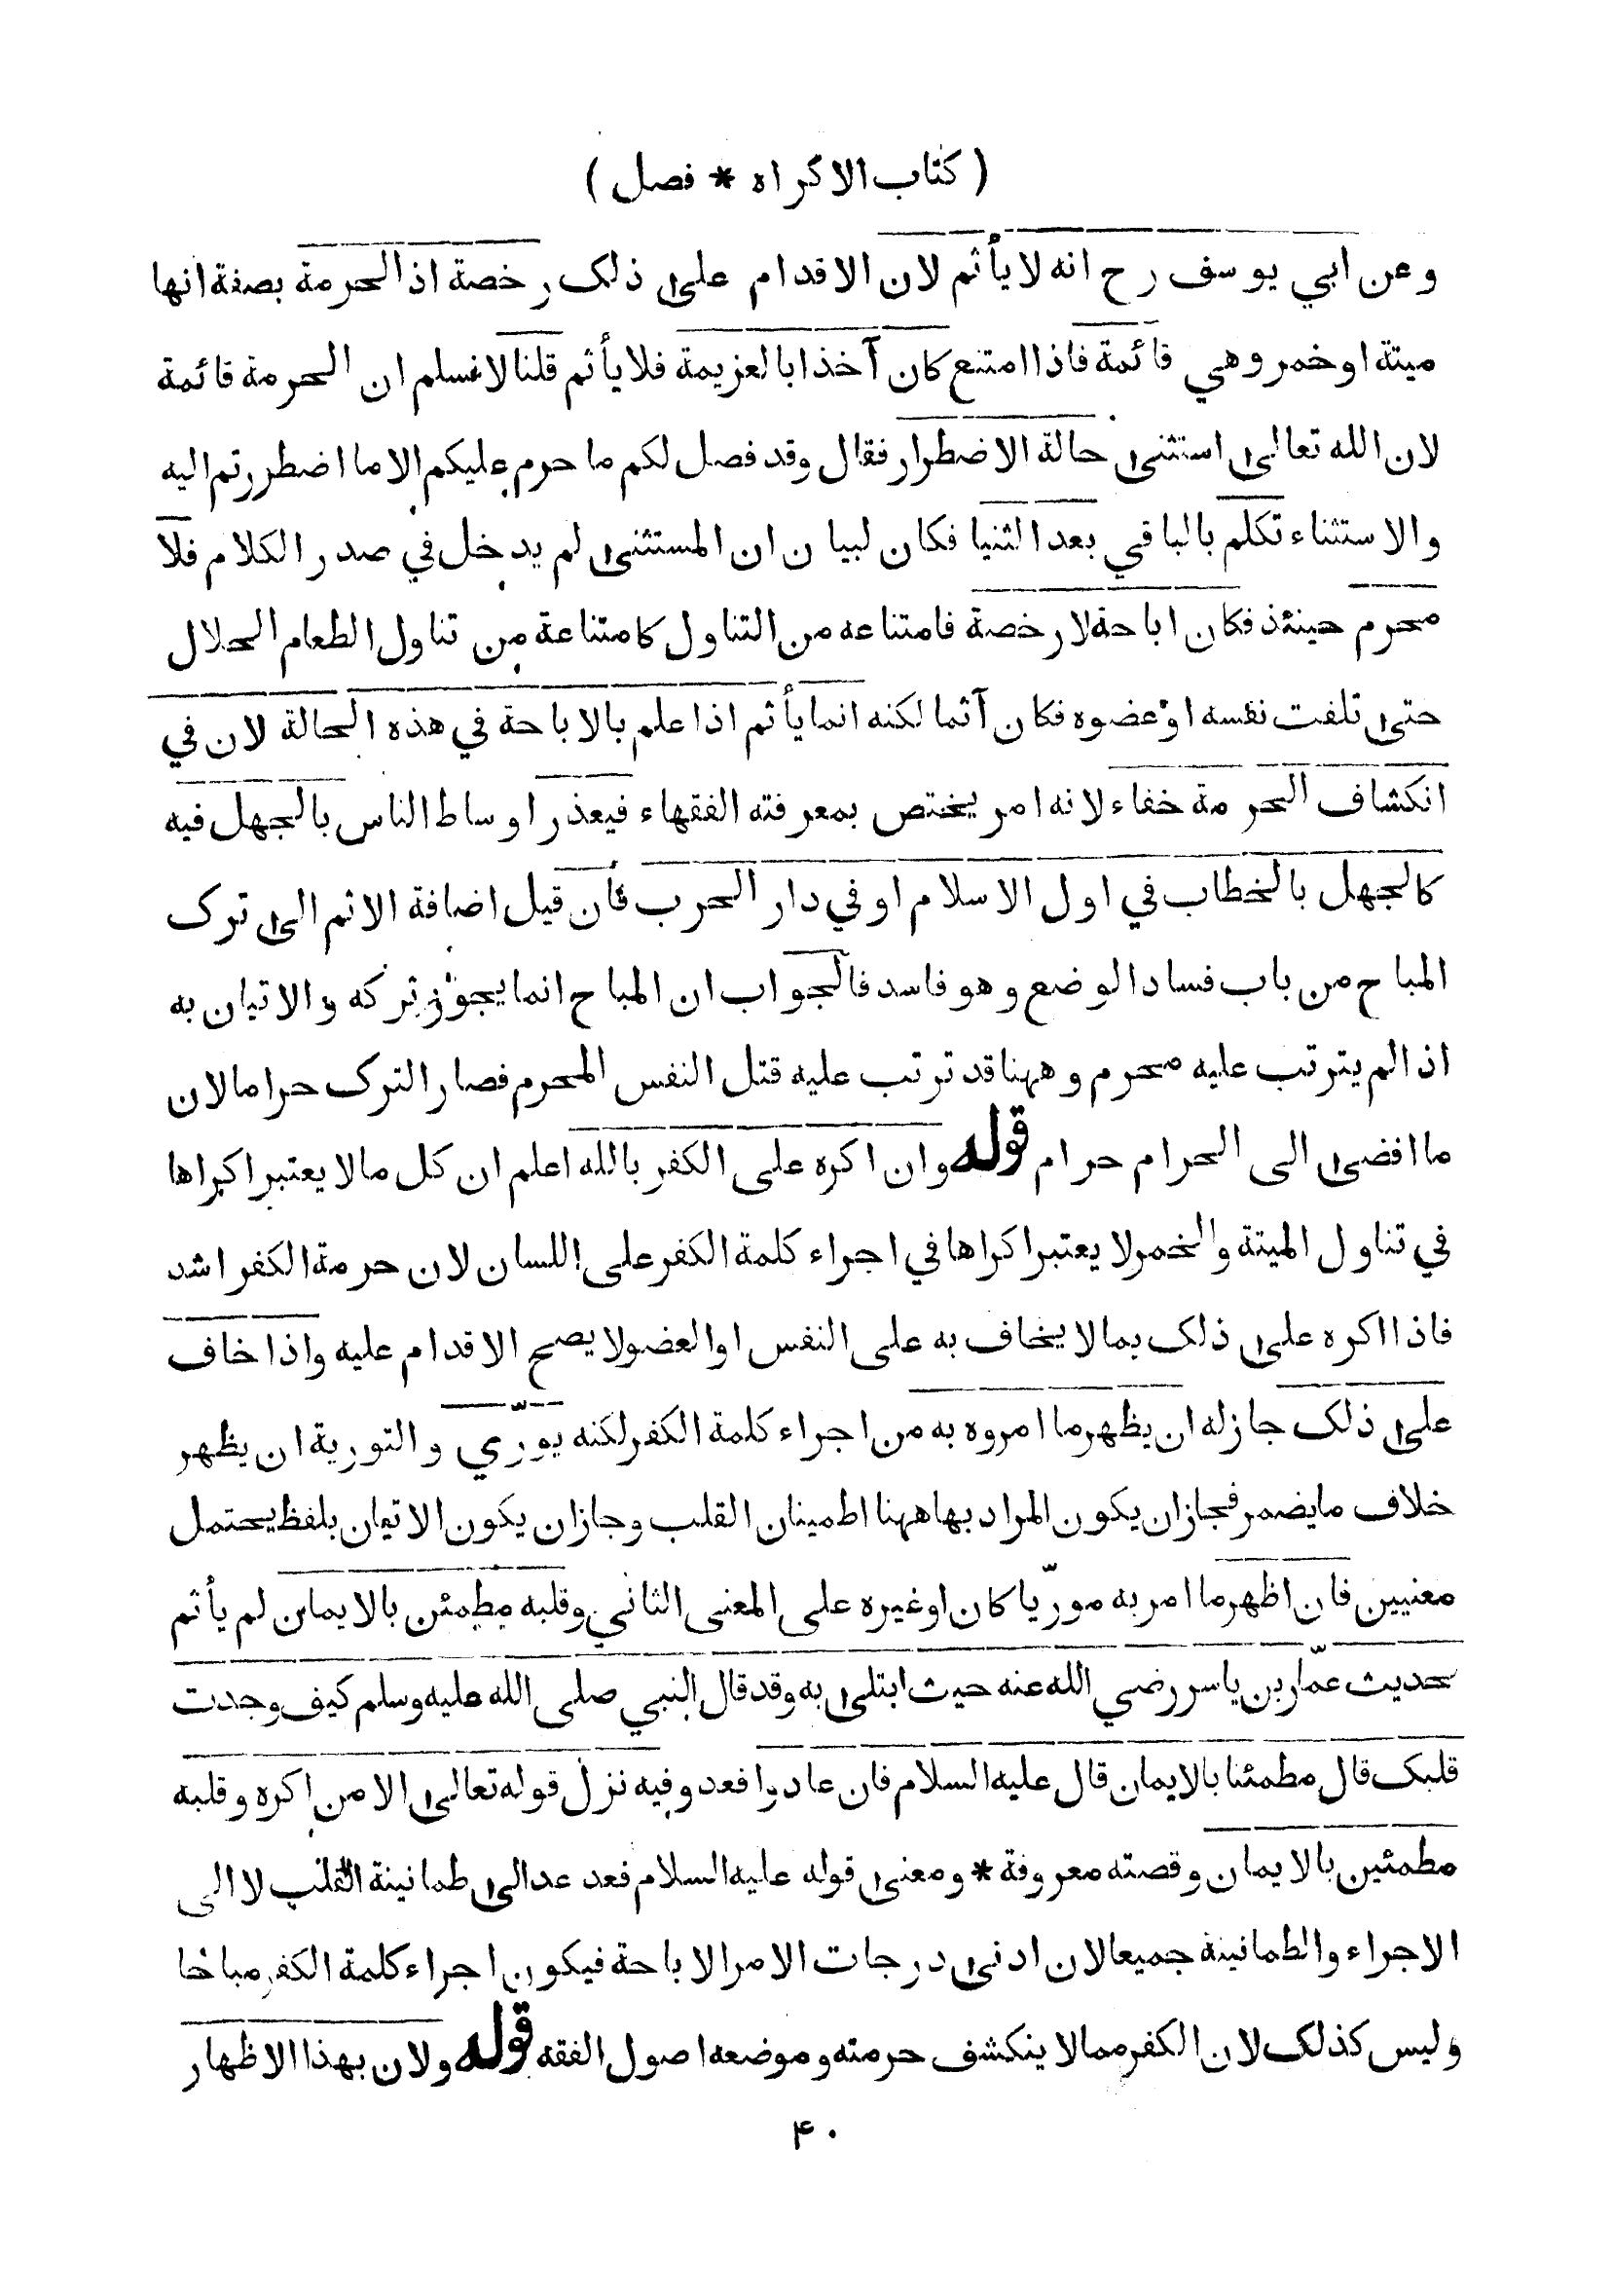 ( كتاب الاكراه * فصل )
وعن ابي يوسف رح انه لا يأثم لان الاقدام على ذلك رخصة اذ الحرمة بصفة انها
ميتة او خمر وهي قائمة فاذا امتنع كان آخذا بالعزيمة فلا يأثم قلنا لا نسلم ان الحرمة قائمة
لان الله تعالى استثنى حالة الاضطرار فقال وقد فصل لكم ما حرم عليكم الا ما اضطررتم اليه
والاستثناء تكلم بالباقي بعد الثنيا فكان لبيان ان المستثنى لم يدخل في صدر الكلام فلا
محرم حينئذ فكان اباحة لا رخصة فامتناعه من التناول كامتناعة من تناول الطعام الحلال
حتى تلفت نفسه او عضوه فكان آثما لكنه انما يأثم اذا علم بالاباحة في هذه الحالة لان في
انكشاف الحرمة خفاء لانه امر يختص بمعرفته الفقهاء فيعذر اوساط الناس بالجهل فيه
كالجهل بالخطاب في اول الاسلام او في دار الحرب فان قيل اضافة الاثم الى ترك
المباح من باب فساد الوضع وهو فاسد فالجواب ان المباح انما يجوز تركه والاتيان به
اذا لم يترتب عليه محرم وههنا قد ترتب عليه قتل النفس المحرم فصار الترك حراما لان
ما افضى الى الحرام حرام قوله وان اكره على الكفر بالله اعلم ان كل ما لا يعتبر اكراها
في تناول الميتة والخمر لا يعتبر اكراها في اجراء كلمة الكفر على اللسان لان حرمة الكفر اشد
فاذا اكره على ذلك بما لا يخاف به على النفس او العضو لا يصح الاقدام عليه واذا خاف
على ذلك جاز له ان يظهر ما امروه به من اجراء كلمة الكفر لكنه يورّي والتورية ان يظهر
خلاف ما يضمر فجاز ان يكون المراد بها ههنا اطمينان القلب وجاز ان يكون الاتيان بلفظ يحتمل
معنيين فان اظهر ما امر به مورّيا كان او غيره على المعنى الثاني وقلبه مطمئن بالايمان لم يأثم
لحديث عمّار بن ياسر رضي الله عنه حيث ابتلى به وقد قال النبي صلى الله عليه وسلم كيف وجدت
قلبك قال مطمئنا بالايمان قال عليه السلام فان عادوا فعد وفيه نزل قوله تعالى الا من اكره وقلبه
مطمئين بالايمان وقصته معروفة * ومعنى قوله عليه السلام فعد عد الى طمانينة القلب لا الى
الاجراء والطمانينة جميعا لان ادنى درجات الامر الاباحة فيكون اجراء كلمة الكفر مباحا
وليس كذلك لان الكفر مما لا ينكشف حرمته وموضعه اصول الفقه قوله ولان بهذا الاظهار
۴۰